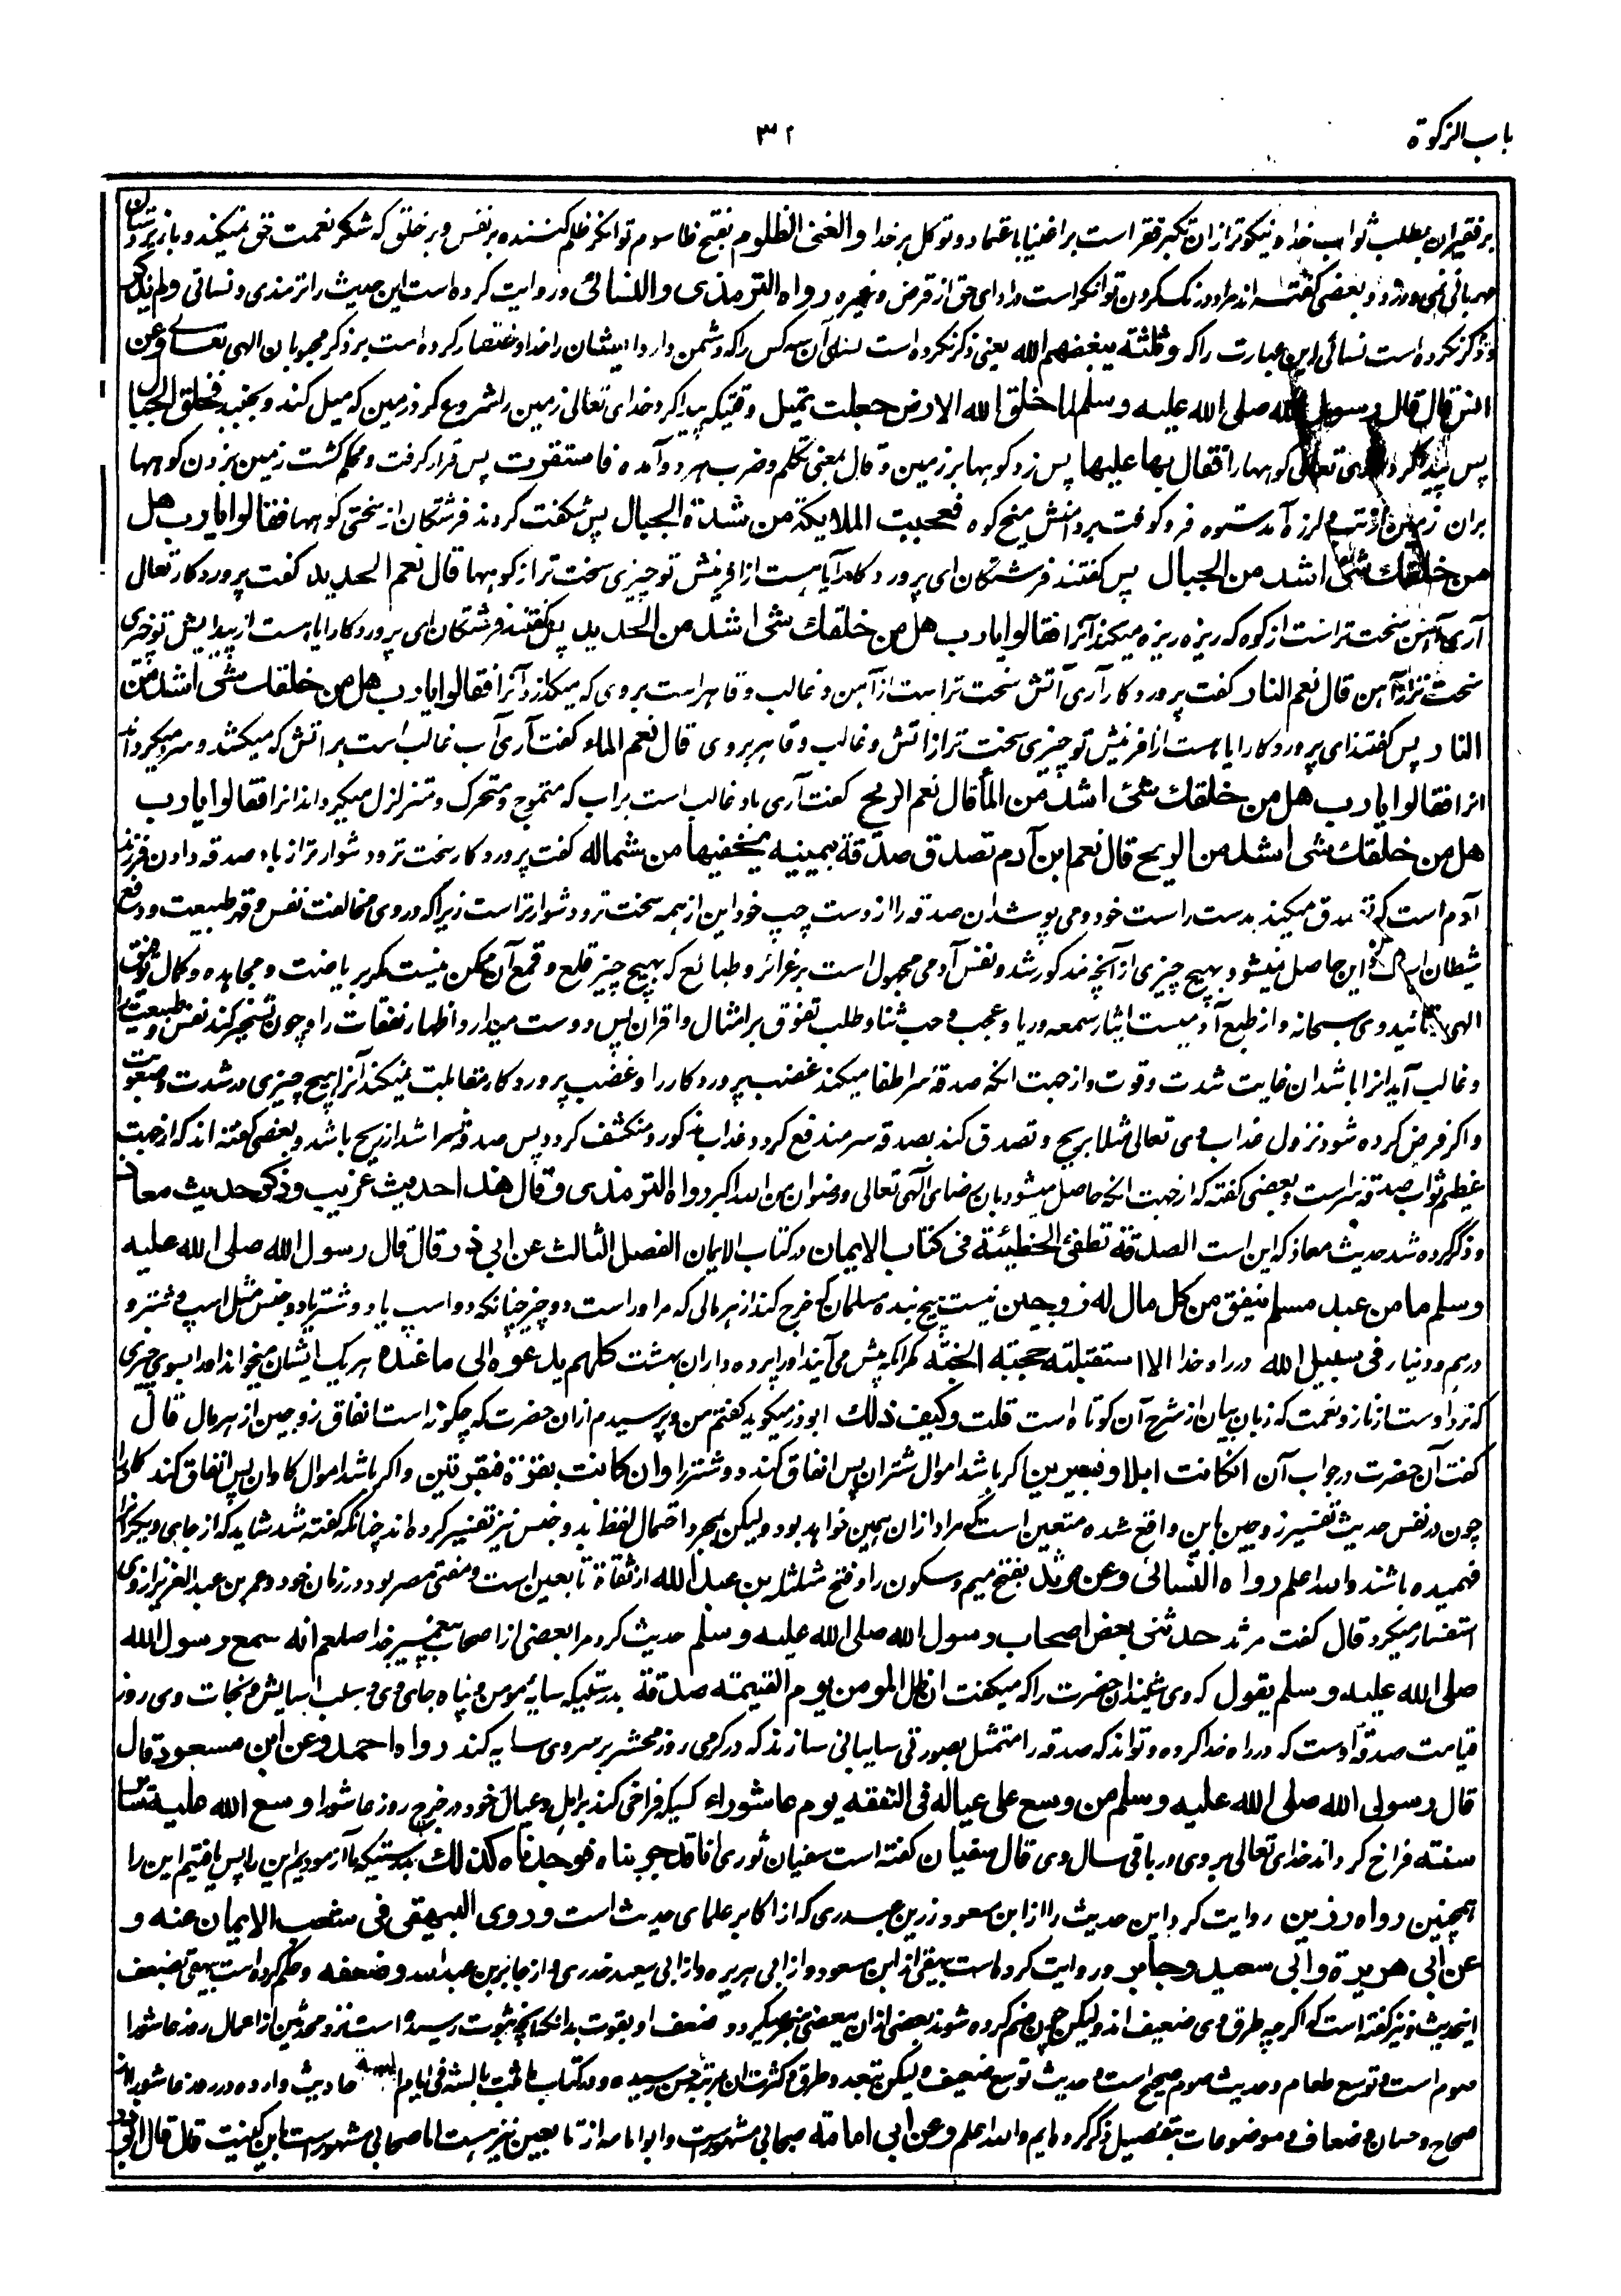 باب الزکوة
۳۲
بر فقیران بطلب ثواب خدا و نیکوتر ازان تکبر فقر است بر اغنیا باعتماد و توکل بر خدا والغنی الظلوم بفتح ظا سوم توانگر ظلم کننده بر نفس و بر خلق که شکر نعمت حق نمیکند و بازیردستان
مهربانی نمی ورزد و بعضی گفته اند مراد درنگ کردن توانگر است در ادای حق از قرض و غیره رواه الترمذی والنسائی و روایت کرده است این حدیث را ترمذی و نسائی ولم یذکر
و ذکر نکرده است نسائی این عبارت را که وثلثة یبغضهم الله یعنی ذکر نکرده است نسائی آن سه کس را که دشمن دارد ایشان را خدا و اختصار کرده است بر ذکر محبوبان الهی تعالی وعن
انس قال قال رسول الله صلی الله علیه وسلم لما خلق الله الارض جعلت تمیل وقتیکه پیدا کرد خدای تعالی زمین را شروع کرد زمین که میل کند و بجنبد فخلق الجبال
پس پیدا کرد خدای تعالی کوهها را فقال بها علیها پس زد کوهها بر زمین و قال بمعنی تکلم و ضرب هر دو آمده فاستقرت پس قرار گرفت و محکم گشت زمین بزدن کوهها
بران زمین از تب و لرزه آمد ستوه فرو کوفت بر دامنش میخ کوه فعجبت الملایکة من شدة الجبال پس شگفت کردند فرشتگان از سختی کوهها فقالوا یا رب هل
من خلقك شئ اشد من الجبال پس گفتند فرشتگان ای پروردگار آیا هست از آفرینش تو چیزی سخت تر از کوهها قال نعم الحدید گفت پروردگار تعالی
آری آهن سخت تر است از کوه که ریزه ریزه میکند آنرا فقالوا یا رب هل من خلقك شئ اشد من الحدید پس گفتند فرشتگان ای پروردگار آیا هست از پیدایش تو چیزی
سخت تر از آهن قال نعم النار گفت پروردگار آری آتش سخت تر است از آهن و غالب و قاهر است بروی که میگدازد آنرا فقالوا یا رب هل من خلقك شئ اشد من
النار پس گفتند ای پروردگار آیا هست از آفرینش تو چیزی سخت تر از آتش و غالب و قاهر بروی قال نعم الماء گفت آری آب غالب است بر آتش که میکشد و سرد میگرداند
انرا فقالوا یا رب هل من خلقك شئ اشد من الماء قال نعم الریح گفت آری باد غالب است بر آب که متموج و متحرک و متزلزل میگرداند انرا فقالوا یا رب
هل من خلقك شئ اشد من الریح قال نعم ابن آدم تصدق صدقة بیمینه یخفیها من شماله گفت پروردگار سخت تر و دشوارتر از باد صدقه دادن فرزند
آدم است که تصدق میکند بدست راست خود و می پوشد ان صدقه را از دست چپ خود این از همه سخت تر و دشوارتر است زیرا که در وی مخالفت نفس و قهر طبیعت و دفع
شیطان است و این حاصل نمیشود بهیچ چیزی از آنچه مذکور شد و نفس آدمی مجبول است بر غرائز و طبائع که بهیچ چیز قلع و قمع آن ممکن نیست مگر بریاضت و مجاهده و کمال توفیق
الهی و تائید وی سبحانه و از طبع آدمیست ایثار سمعه و ریا و عجب و حب ثنا و طلب تفوق بر امثال و اقران پس دوست میدارد اظهار نفقات را و چون تسخیر کند نفس و طبیعت را
و غالب آید انرا باشد ان غایت شدت و قوت و از جهت انکه صدقه سر اطفا میکند غضب پروردگار را و غضب پروردگار مقابلت نمیکند آنرا هیچ چیزی در شدت و صعوبت
و اگر فرض کرده شود نزول عذاب وی تعالی مثلا بریح و تصدق کند بصدقه سر مندفع گردد عذاب مذکور و منکشف گردد پس صدقه سر اشد از ریح باشد و بعضی گفته اند که از جهت
عظم ثواب صدقه سر است و بعضی گفته که از جهت انکه حاصل میشود بان رضای الهی تعالی و رضوان من الله اکبر رواه الترمذی وقال هذا حدیث غریب وذکر حدیث معاذ
و ذکر کرده شد حدیث معاذ که این است الصدقة تطفئ الخطیئة فی کتاب الایمان در کتاب الایمان الفصل الثالث عن ابی ذر قال قال رسول الله صلی الله علیه
وسلم ما من عبد مسلم ینفق من کل مال له زوجین نیست هیچ بنده مسلمان که خرج کند از هر مالی که مر او راست دو چیز چنانکه دو اسپ یا دو شتر یا دو جنس مثل اسپ و شتر و
درهم و دینار فی سبیل الله در راه خدا الا استقبلته حجبة الجنة مگر انکه پیش می آیند او را پرده داران بهشت کلهم یدعوه الی ما عنده هر یک ایشان میخواند او را بسوی چیزی
که نزد اوست از ناز و نعمت که زبان بیان از شرح آن کوتاه است قلت وکیف ذلك ابوذر میگوید گفتم من و پرسیدم ازان حضرت که چگونه است انفاق زوجین از هر مال قال
گفت آن حضرت در جواب آن ان کانت ابلا فبعیرین اگر باشد اموال شتران پس انفاق کند دو شتر را وان کانت بقرة فبقرتین و اگر باشد اموال گاوان پس انفاق کند دو گاو را
چون در نفس حدیث تفسیر زوجین باین واقع شده متعین است که مراد ازان همین خواهد بود و لیکن بمجرد احتمال لفظ بدو جنس نیز تفسیر کرده اند چنانکه گفته شد شاید که از جای دیگر آنرا
فهمیده باشند والله اعلم رواه النسائی وعن مرثد بفتح میم و سکون را و فتح مثلثه بن عبد الله از ثقاة تابعین است و مفتی مصر بود در زمان خود و عمر بن عبدالعزیز از وی
استفسار میکرد قال گفت مرثد حدثنی بعض اصحاب رسول الله صلی الله علیه وسلم حدیث کرد مرا بعضی از اصحاب پیغمبر خدا صلعم انه سمع رسول الله
صلی الله علیه وسلم یقول که وی شنید ان حضرت را که میگفت ان ظل المومن یوم القیمة صدقة بدرستیکه سایه مومن و پناه جای وی و سبب اسایش و نجات وی روز
قیامت صدقه اوست که در راه خدا کرده و تواند که صدقه را متمثل بصورتی سایبانی سازند که در گرمی روز محشر بر سر وی سایه کند رواه احمد وعن ابن مسعود قال
قال رسول الله صلی الله علیه وسلم من وسع علی عیاله فی النفقة یوم عاشوراء کسیکه فراخی کند بر اهل و عیال خود در خرج روز عاشورا وسع الله علیه سائر
سنته فراخ گرداند خدای تعالی بروی در باقی سال وی قال سفیان گفته است سفیان ثوری انا قد جربناه فوجدناه کذلك بدرستیکه ما آزمودیم این را پس یافتیم این را
همچنین رواه رزین روایت کرد این حدیث را از ابن مسعود رزین عبدری که از اکابر علمای حدیث است وروی البیهقی فی شعب الایمان عنه و
عن ابی هریرة وابی سعید وجابر و روایت کرده است بیهقی از ابن مسعود و از ابی هریره و از ابی سعید خدری و از جابر بن عبدالله وضعفه و حکم کرده است بیهقی بضعف
اینحدیث و نیز گفته است که اگر چه طرق وی ضعیف اند و لیکن چون ضم کرده شوند بعضی ازان ببعضی منجبر میگردد ضعف او بقوت بدانکه آنچه بثبوت رسیده است نزد محدثین از اعمال روز عاشورا
صوم است و توسع طعام و حدیث صوم صحیح است و حدیث توسع ضعیف و لیکن بتعدد طرق و کثرت ان بمرتبه حسن رسیده و در کتاب ما ثبت بالسنة فی ایام السنة احادیث وارده در روز عاشورا از
صحاح و حسان و ضعاف و موضوعات بتفصیل ذکر کرده ایم والله اعلم وعن ابی امامة صحابی مشهور است و ابو امامه از تابعین نیز هست اما صحابی مشهور است باین کنیت قال قال ابوذر